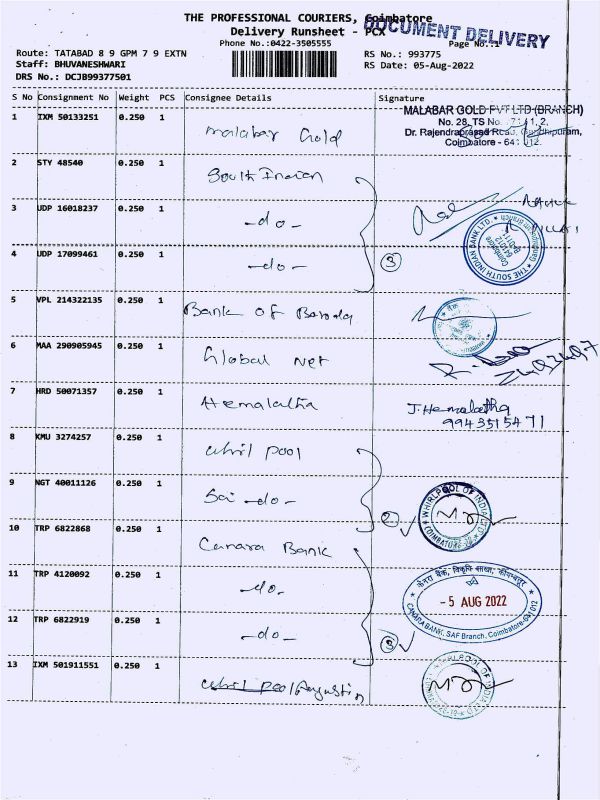 THE PROFESSIONAL COURIERS, Coimbatore
Delivery Runsheet - PCX
DOCUMENT DELIVERY
Phone No.:0422-3505555
Page No.:1
Route: TATABAD 8 9 GPM 7 9 EXTN
RS No.: 993775
Staff: BHUVANESHWARI
RS Date: 05-Aug-2022
DRS No.: DCJB99377501
S No Consignment No Weight PCS Consignee Details Signature
1 IXM 50133251 0.250 1 Malabar Gold
MALABAR GOLD PVT LTD (BRANCH)
No. 28, TS No.
Dr. Rajendraprasad Road, Gandhipuram,
Coimbatore - 641 012.
2 STY 48540 0.250 1 South Indian
3 UDP 16018237 0.250 1 -do-
4 UDP 17099461 0.250 1 -do- 3
THE SOUTH INDIAN BANK LTD.
Coimbatore
641012
5 VPL 214322135 0.250 1 Bank of Baroda
6 MAA 290905945 0.250 1 Global Net
7 HRD 50071357 0.250 1 Hemalatha J. Hemalatha
9943515471
8 KMU 3274257 0.250 1 whil pool
9 NGT 40011126 0.250 1 Sai -do- 2
WHIRLPOOL OF INDIA LTD
COIMBATORE
10 TRP 6822868 0.250 1 Canara Bank
11 TRP 4120092 0.250 1 -do-
केनरा बैंक,
- 5 AUG 2022
CANARA BANK, SAF Branch, Coimbatore-641012
12 TRP 6822919 0.250 1 -do- 3
13 IXM 501911551 0.250 1 whil pool Augustin